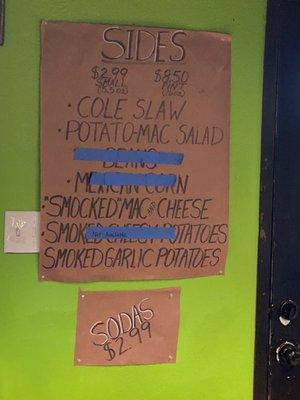 SIDES
$2.99 $8.50
SMALL PINT
(5.5oz) (16oz)
• COLE SLAW
• POTATO-MAC SALAD
BEANS
• MEXICAN CORN
• "SMOCKED" MAC AND CHEESE
• SMOKED CHEESY POTATOES
Not Available
SMOKED GARLIC POTATOES
SODAS
$2.99